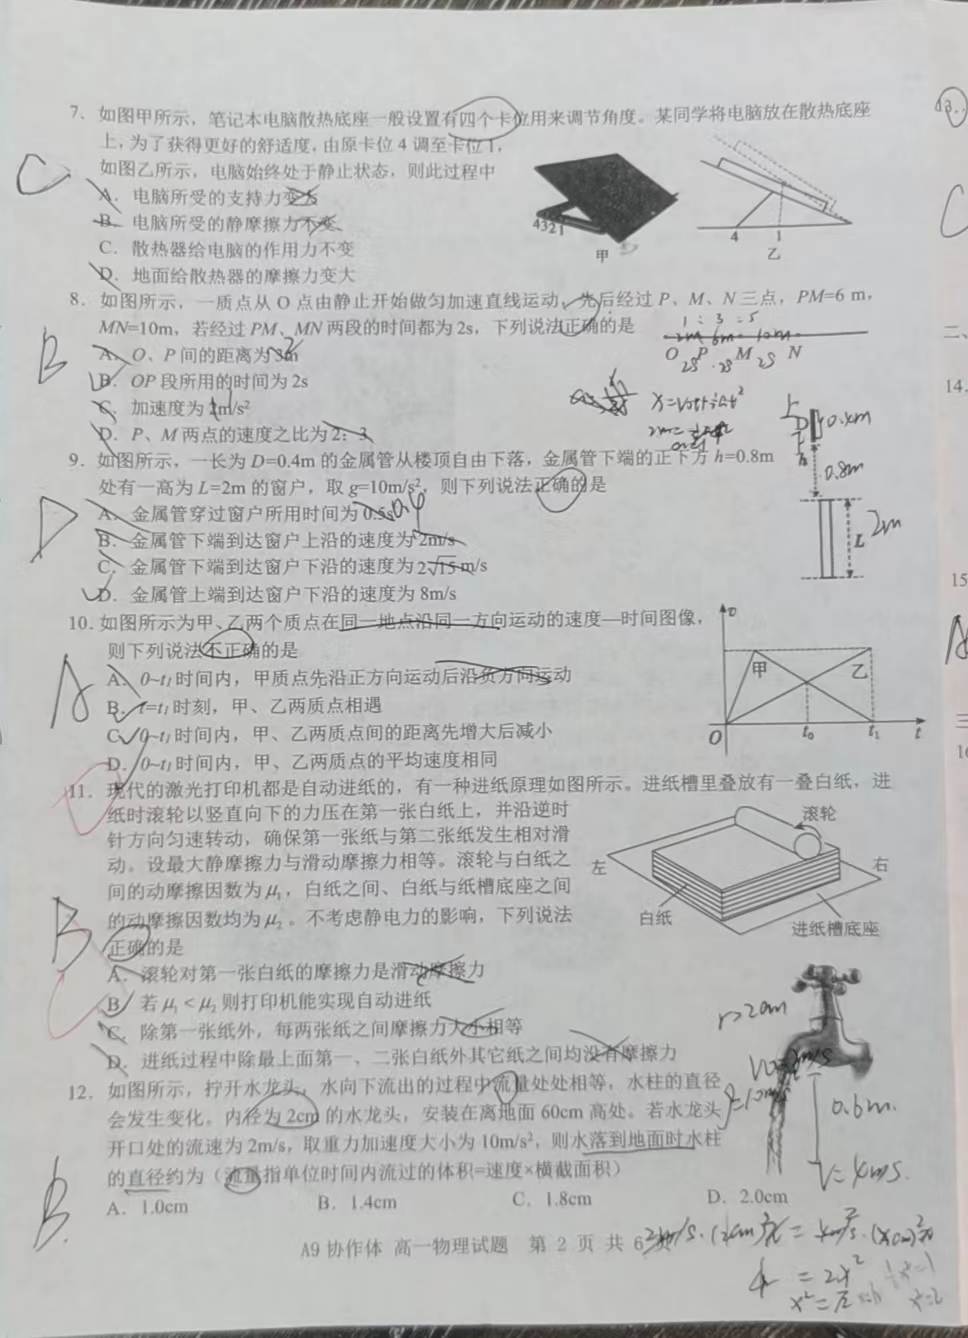 7. 如图甲所示，笔记本电脑散热底座一般设置有四个卡位用来调节角度。某同学将电脑放在散热底座
上，为了获得更好的舒适度，由原卡位 4 调至卡位 1，
如图乙所示，电脑始终处于静止状态，则此过程中
C
A. 电脑所受的支持力变大
B. 电脑所受的静摩擦力不变
C. 散热器给电脑的作用力不变
D. 地面给散热器的摩擦力变大
4321
甲
4 1
乙
8. 如图所示，一质点从 O 点由静止开始做匀加速直线运动，先后经过 P、M、N 三点，PM=6 m，
MN=10m，若经过 PM、MN 两段的时间都为 2s，下列说法正确的是
B
A. O、P 间的距离为3m
B. OP 段所用的时间为 2s
C. 加速度为 2m/s²
D. P、M 两点的速度之比为 2：3
1 : 3 : 5
2m 6m 10m
O P M N
2s 2s 2s
9. 如图所示，一长为 D=0.4m 的金属管从楼顶自由下落，金属管下端的正下方 h=0.8m
处有一高为 L=2m 的窗户，取 g=10m/s²，则下列说法正确的是
D
A. 金属管穿过窗户所用时间为 0.5s 0.4
B. 金属管下端到达窗户上沿的速度为 2m/s
C. 金属管下端到达窗户下沿的速度为 2√15 m/s
D. 金属管上端到达窗户下沿的速度为 8m/s
D 0.4m
h 0.8m
L 2m
10. 如图所示为甲、乙两个质点在同一地点沿同一方向运动的速度—时间图像，
则下列说法不正确的是
A
A. 0~t₁ 时间内，甲质点先沿正方向运动后沿负方向运动
B. t=t₁ 时刻，甲、乙两质点相遇
C. 0~t₁ 时间内，甲、乙两质点间的距离先增大后减小
D. 0~t₁ 时间内，甲、乙两质点的平均速度相同
v
甲 乙
O t₀ t₁ t
11. 现代的激光打印机都是自动进纸的，有一种进纸原理如图所示。进纸槽里叠放有一叠白纸，进
纸时滚轮以竖直向下的力压在第一张白纸上，并沿逆时
针方向匀速转动，确保第一张纸与第二张纸发生相对滑
动。设最大静摩擦力与滑动摩擦力相等。滚轮与白纸之
间的动摩擦因数为 μ₁，白纸之间、白纸与纸槽底座之间
的动摩擦因数均为 μ₂。不考虑静电力的影响，下列说法
正确的是
B
A. 滚轮对第一张白纸的摩擦力是滑动摩擦力
B. 若 μ₁ < μ₂ 则打印机能实现自动进纸
C. 除第一张纸外，每两张纸之间摩擦力大小相等
D. 进纸过程中除最上面第一、二张白纸外其它纸之间均没有摩擦力
滚轮
左 右
白纸
进纸槽底座
12. 如图所示，拧开水龙头，水向下流出的过程中流量处处相等，水柱的直径
会发生变化。内径为 2cm 的水龙头，安装在离地面 60cm 高处。若水龙头
开口处的流速为 2m/s，取重力加速度大小为 10m/s²，则水落到地面时水柱
的直径约为（流量指单位时间内流过的体积=速度×横截面积）
B.
A. 1.0cm B. 1.4cm C. 1.8cm D. 2.0cm
0.6m.
V=4m/s.
A9 协作体 高一物理试题 第 2 页 共 6 页
C
二、
14.
15
A
三
16